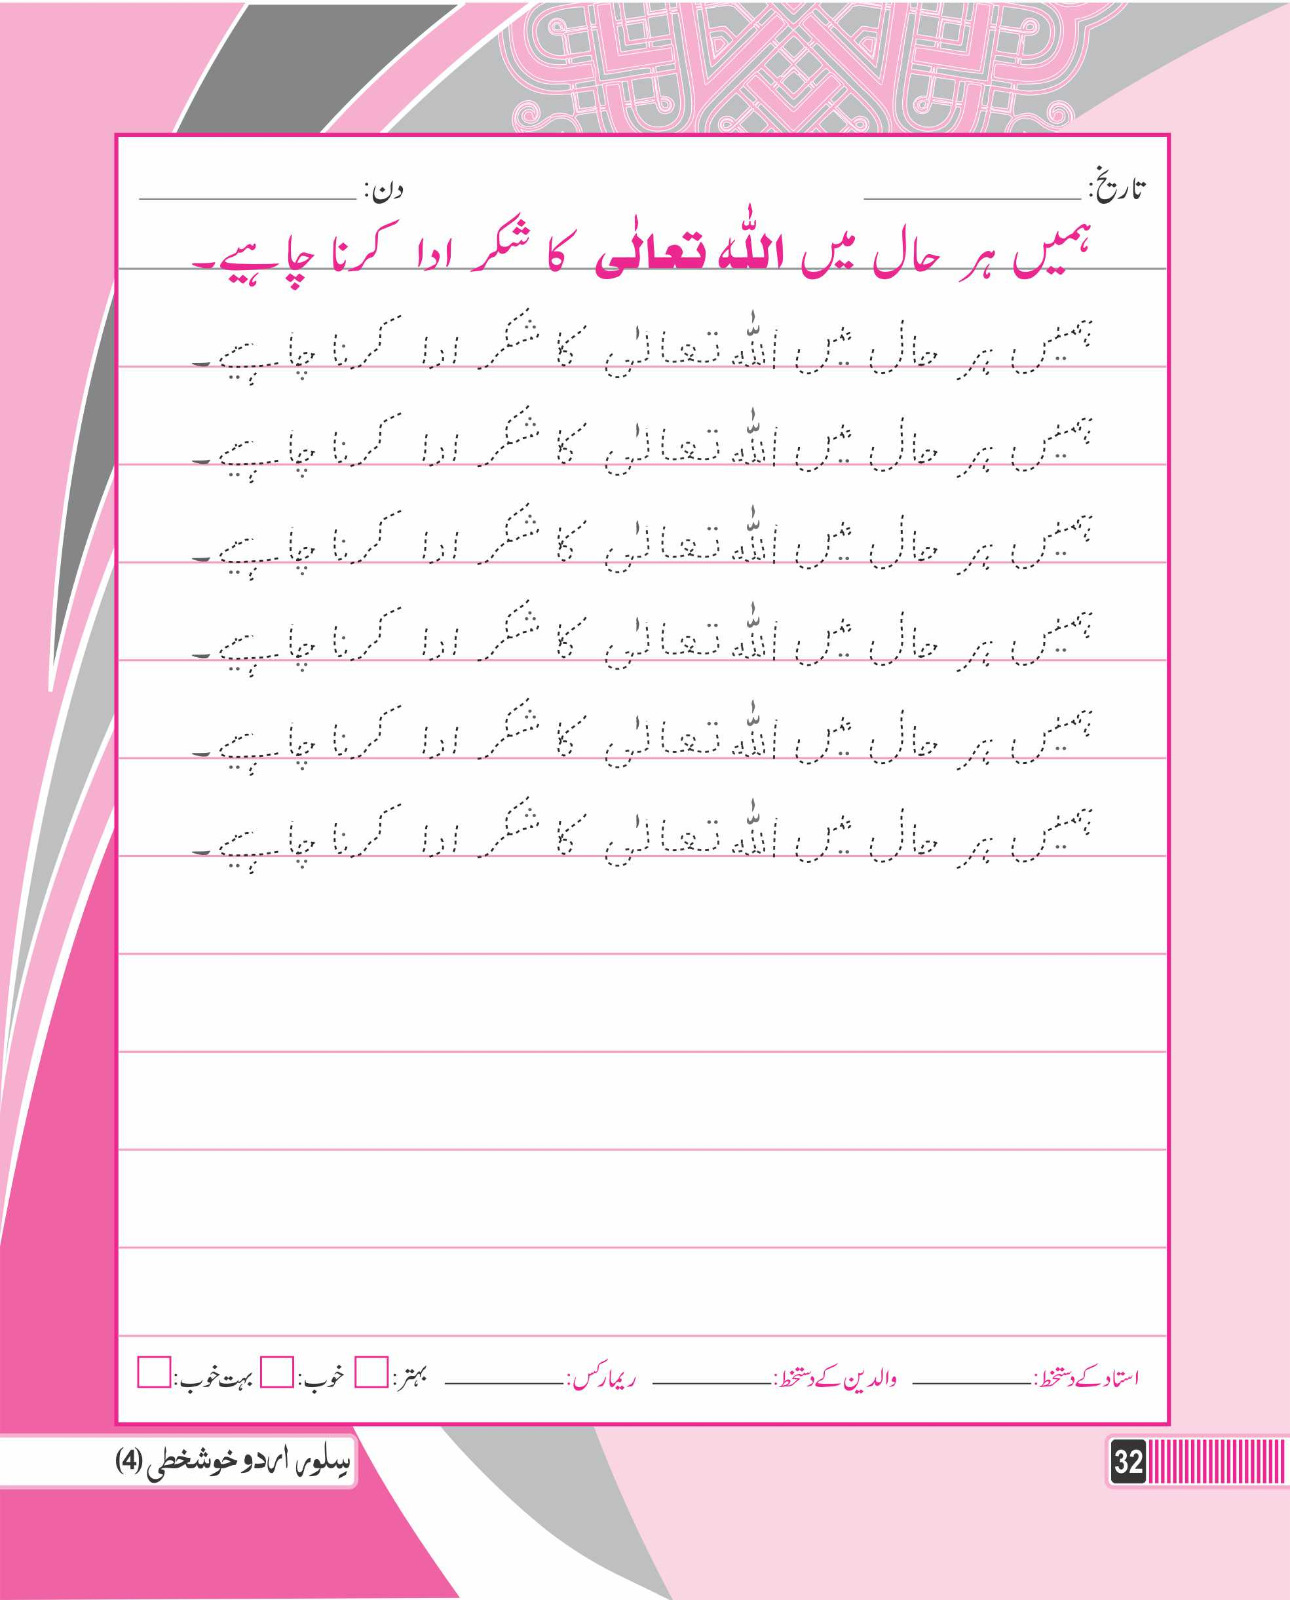 تاریخ: ____________ دن: ____________
ہمیں ہر حال میں اللہ تعالٰی کا شکر ادا کرنا چاہیے۔
ہمیں ہر حال میں اللہ تعالٰی کا شکر ادا کرنا چاہیے۔
ہمیں ہر حال میں اللہ تعالٰی کا شکر ادا کرنا چاہیے۔
ہمیں ہر حال میں اللہ تعالٰی کا شکر ادا کرنا چاہیے۔
ہمیں ہر حال میں اللہ تعالٰی کا شکر ادا کرنا چاہیے۔
ہمیں ہر حال میں اللہ تعالٰی کا شکر ادا کرنا چاہیے۔
ہمیں ہر حال میں اللہ تعالٰی کا شکر ادا کرنا چاہیے۔
استاد کے دستخط: ________ والدین کے دستخط: ________ ریمارکس: ________ بہتر: خوب: بہت خوب:
32
سِلور اردو خوشخطی (4)